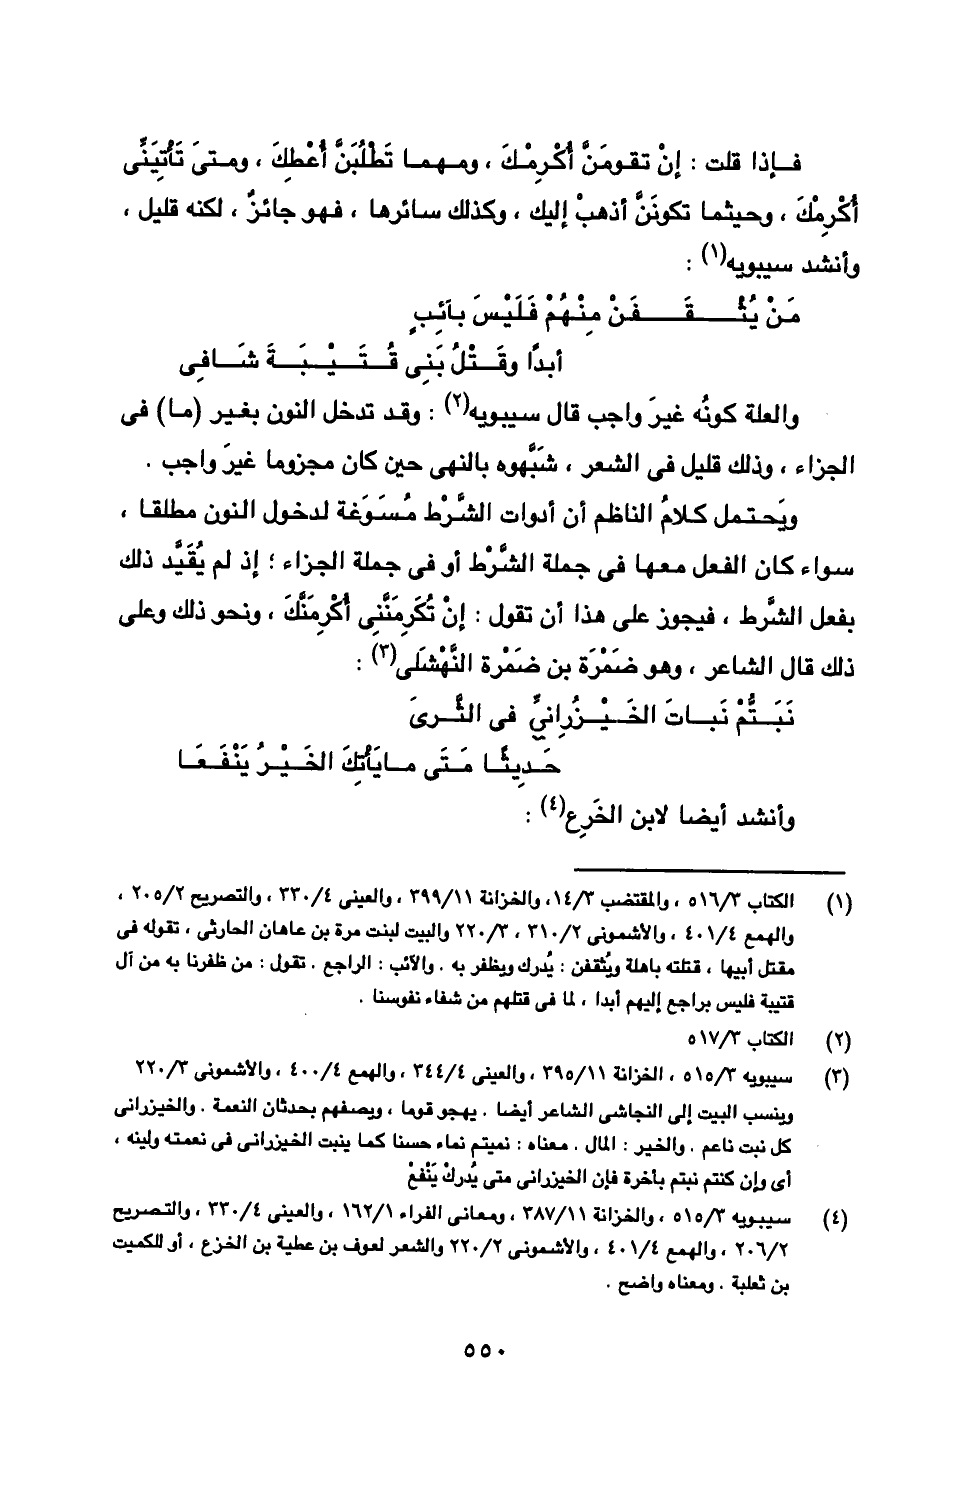 فإذا قلت : إنْ تقومَنَّ أُكْرِمْكَ ، ومهما تَطْلُبَنَّ أُعْطِكَ ، ومتى تَأْتِيَنِّى
أُكْرِمْكَ ، وحيثما تكونَنَّ أذهبْ إليك ، وكذلك سائرها ، فهو جائزٌ ، لكنه قليل ،
وأنشد سيبويه(١) :
مَنْ يُثْقَفَنْ مِنْهُمْ فَلَيْسَ بآئِبٍ
أبدًا وقَتْلُ بَنِى قُتَيْبَةَ شَافِى
والعلة كونُه غيرَ واجب قال سيبويه(٢) : وقد تدخل النون بغير (ما) فى
الجزاء ، وذلك قليل فى الشعر ، شَبَّهوه بالنهى حين كان مجزوما غيرَ واجب .
ويَحتمل كلامُ الناظم أن أدوات الشَّرْط مُسَوِّغة لدخول النون مطلقا ،
سواء كان الفعل معها فى جملة الشَّرْط أو فى جملة الجزاء ؛ إذ لم يُقَيَّد ذلك
بفعل الشَّرط ، فيجوز على هذا أن تقول : إنْ تُكَرِمَنَّنِى أُكْرِمَنَّكَ ، ونحو ذلك وعلى
ذلك قال الشاعر ، وهو ضَمْرَة بن ضَمْرة النَّهْشَلَى(٣) :
نَبَتُّمْ نَباتَ الخَيْزُرانِىِّ فى الثَّرىَ
حَدِيثًا مَتَى مايَأْتِكَ الخَيْرُ يَنْفَعَا
وأنشد أيضا لابن الخَرِع(٤) :
(١) الكتاب ٥١٦/٣ ، والمقتضب ١٤/٣، والخزانة ٣٩٩/١١ ، والعينى ٣٣٠/٤ ، والتصريح ٢٠٥/٢ ،
والهمع ٤٠١/٤ ، والأشمونى ٣١٠/٢ ، ٢٢٠/٣ والبيت لبنت مرة بن عاهان الحارثى ، تقوله فى
مقتل أبيها ، قتلته باهلة ويُثقفن : يُدرك ويظفر به . والآئب : الراجع . تقول : من ظفرنا به من آل
قتيبة فليس براجع إليهم أبدا ، لما فى قتلهم من شفاء نفوسنا .
(٢) الكتاب ٥١٧/٣
(٣) سيبويه ٥١٥/٣ ، الخزانة ٣٩٥/١١ ، والعينى ٣٤٤/٤ ، والهمع ٤٠٠/٤ ، والأشمونى ٢٢٠/٣
وينسب البيت إلى النجاشى الشاعر أيضا . يهجو قوما ، ويصفهم بحدثان النعمة . والخيزرانى
كل نبت ناعم . والخير : المال . معناه : نميتم نماء حسنا كما ينبت الخيزرانى فى نعمته ولينه ،
أى وإن كنتم نبتم بأخرة فإن الخيزرانى متى يُدركْ يَنْفعْ
(٤) سيبويه ٥١٥/٣ ، والخزانة ٣٨٧/١١ ، ومعانى الفراء ١٦٢/١ ، والعينى ٣٣٠/٤ ، والتصريح
٢٠٦/٢ ، والهمع ٤٠١/٤ ، والأشمونى ٢٢٠/٢ والشعر لعوف بن عطية بن الخزع ، أو للكميت
بن ثعلبة . ومعناه واضح .
٥٥٠